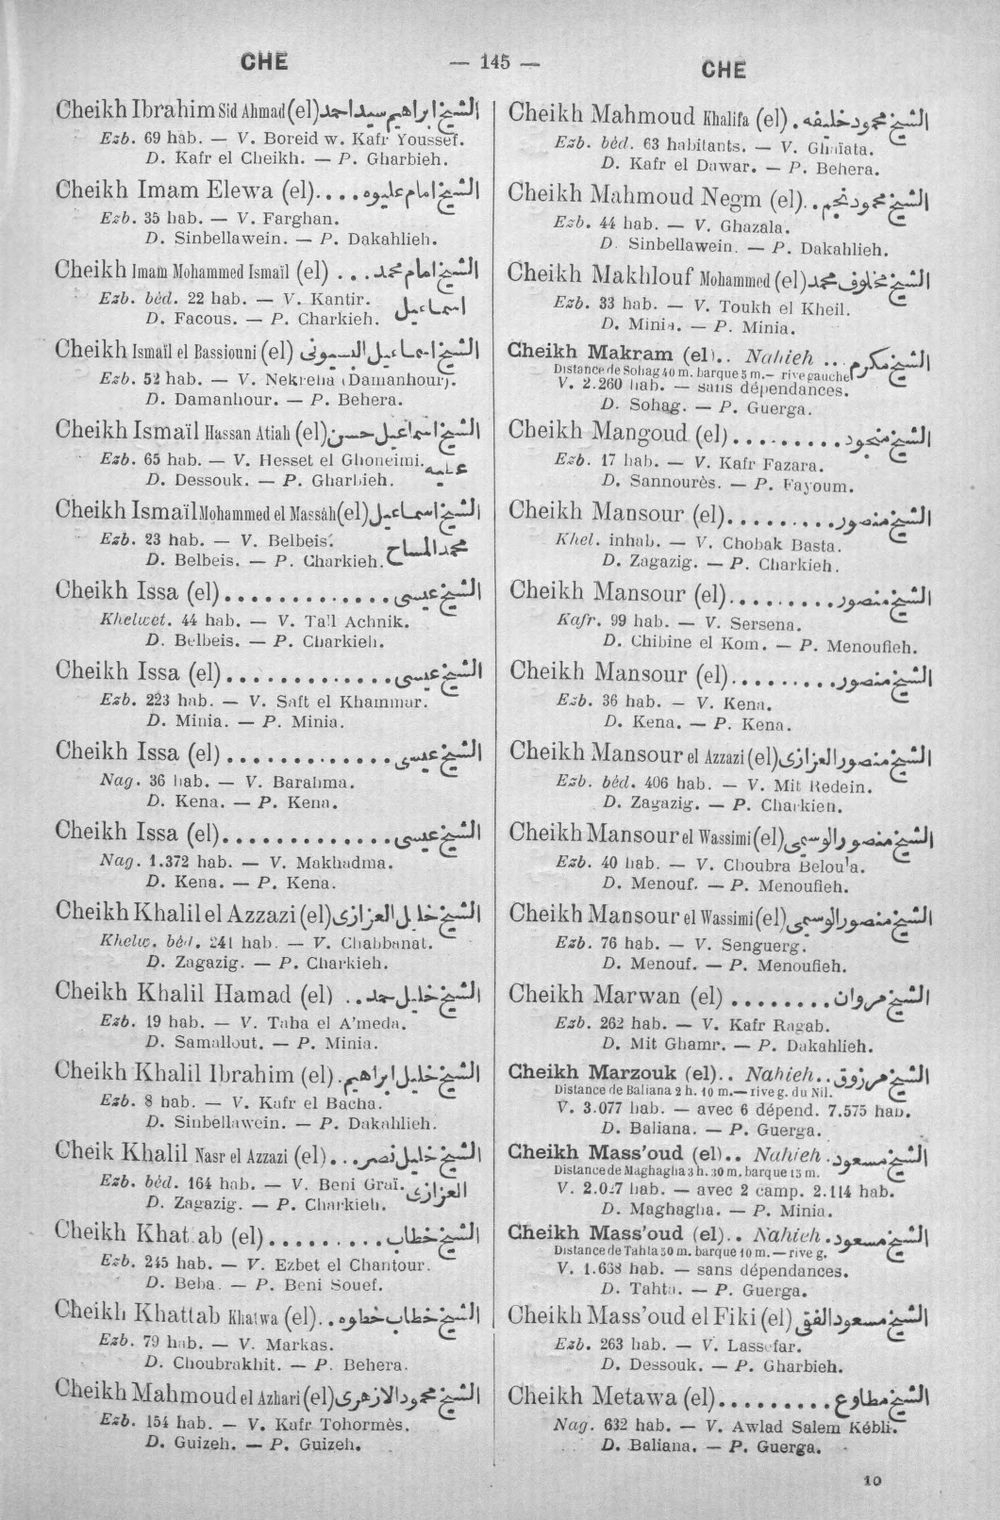 CHE — 145 — CHE
Cheikh Ibrahim Sid Ahmad (el) الشيخ ابراهيم سيد احمد
Ezb. 69 hab. — V. Boreid w. Kafr Youssef.
D. Kafr el Cheikh. — P. Gharbieh.
Cheikh Imam Elewa (el).... الشيخ امام عليوه
Ezb. 35 hab. — V. Farghan.
D. Sinbellawein. — P. Dakahlieh.
Cheikh Imam Mohammed Ismaïl (el) ... الشيخ امام محمد
Ezb. béd. 22 hab. — V. Kantir. اسماعيل
D. Facous. — P. Charkieh.
Cheikh Ismaïl el Bassiouni (el) الشيخ اسماعيل البسيونى
Ezb. 52 hab. — V. Nekreha (Damanhour).
D. Damanhour. — P. Behera.
Cheikh Ismaïl Hassan Atiah (el) الشيخ اسماعيل حسن
Ezb. 65 hab. — V. Hesset el Ghoneimi. عطيه
D. Dessouk. — P. Gharbieh.
Cheikh Ismaïl Mohammed el Massàh (el) الشيخ اسماعيل
Ezb. 23 hab. — V. Belbeis. محمد المساح
D. Belbeis. — P. Charkieh.
Cheikh Issa (el)............. الشيخ عيسى
Khelwet. 44 hab. — V. Ta'l Achnik.
D. Belbeis. — P. Charkieh.
Cheikh Issa (el)............. الشيخ عيسى
Ezb. 223 hab. — V. Saft el Khammar.
D. Minia. — P. Minia.
Cheikh Issa (el)............. الشيخ عيسى
Nag. 36 hab. — V. Barahma.
D. Kena. — P. Kena.
Cheikh Issa (el)............. الشيخ عيسى
Nag. 1.372 hab. — V. Makhadma.
D. Kena. — P. Kena.
Cheikh Khalil el Azzazi (el) الشيخ خليل العزازى
Khelw. béd. 241 hab. — V. Chabbanat.
D. Zagazig. — P. Charkieh.
Cheikh Khalil Hamad (el) .. الشيخ خليل حمد
Ezb. 19 hab. — V. Taha el A'meda.
D. Samallout. — P. Minia.
Cheikh Khalil Ibrahim (el). الشيخ خليل ابراهيم
Ezb. 8 hab. — V. Kafr el Bacha.
D. Sinbellawein. — P. Dakahlieh.
Cheik Khalil Nasr el Azzazi (el)... الشيخ خليل نصر
Ezb. béd. 164 hab. — V. Beni Graï. العزازى
D. Zagazig. — P. Charkieh.
Cheikh Khattab (el)......... الشيخ خطاب
Ezb. 245 hab. — V. Ezbet el Chantour.
D. Beba. — P. Beni Souef.
Cheikh Khattab Khatwa (el).. الشيخ خطاب خطوه
Ezb. 79 hab. — V. Markas.
D. Choubrakhit. — P. Behera.
Cheikh Mahmoud el Azhari (el) الشيخ محمود الازهرى
Ezb. 154 hab. — V. Kafr Tohormès.
D. Guizeh. — P. Guizeh.
Cheikh Mahmoud Khalifa (el). الشيخ محمود خليفه
Ezb. béd. 63 habitants. — V. Ghaïata.
D. Kafr el Dawar. — P. Behera.
Cheikh Mahmoud Negm (el).. الشيخ محمود نجم
Ezb. 44 hab. — V. Ghazala.
D. Sinbellawein. — P. Dakahlieh.
Cheikh Makhlouf Mohammed (el) الشيخ مخلوف محمد
Ezb. 33 hab. — V. Toukh el Kheil.
D. Minia. — P. Minia.
Cheikh Makram (el).. Nahieh ... الشيخ مكرم
Distance de Sohag 40 m. barque 5 m.— rive gauche
V. 2.260 hab. — sans dépendances.
D. Sohag. — P. Guerga.
Cheikh Mangoud (el)......... الشيخ منجود
Ezb. 17 hab. — V. Kafr Fazara.
D. Sannourès. — P. Fayoum.
Cheikh Mansour (el)......... الشيخ منصور
Khel. inhab. — V. Chobak Basta.
D. Zagazig. — P. Charkieh.
Cheikh Mansour (el)......... الشيخ منصور
Kafr. 99 hab. — V. Sersena.
D. Chibine el Kom. — P. Menoufieh.
Cheikh Mansour (el)......... الشيخ منصور
Ezb. 36 hab. — V. Kena.
D. Kena. — P. Kena.
Cheikh Mansour el Azzazi (el) الشيخ منصور العزازى
Ezb. béd. 406 hab. — V. Mit Redein.
D. Zagazig. — P. Charkieh.
Cheikh Mansour el Wassimi (el) الشيخ منصور الوسيمى
Ezb. 40 hab. — V. Choubra Belou'a.
D. Menouf. — P. Menoufieh.
Cheikh Mansour el Wassimi (el) الشيخ منصور الوسيمى
Ezb. 76 hab. — V. Senguerg.
D. Menouf. — P. Menoufieh.
Cheikh Marwan (el) ........ الشيخ مروان
Ezb. 262 hab. — V. Kafr Ragab.
D. Mit Ghamr. — P. Dakahlieh.
Cheikh Marzouk (el).. Nahieh.. الشيخ مرزوق
Distance de Baliana 2 h. 10 m.— rive g. du Nil.
V. 3.077 hab. — avec 6 dépend. 7.575 hab.
D. Baliana. — P. Guerga.
Cheikh Mass'oud (el).. Nahieh. الشيخ مسعود
Distance de Maghagha 3 h. 30 m. barque 15 m.
V. 2.0 7 hab. — avec 2 camp. 2.114 hab.
D. Maghagha. — P. Minia.
Cheikh Mass'oud (el).. Nahieh. الشيخ مسعود
Distance de Tahta 50 m. barque 10 m. — rive g.
V. 1.638 hab. — sans dépendances.
D. Tahta. — P. Guerga.
Cheikh Mass'oud el Fiki (el) الشيخ مسعود الفقى
Ezb. 263 hab. — V. Lassefar.
D. Dessouk. — P. Gharbieh.
Cheikh Metawa (el)......... الشيخ مطاوع
Nag. 632 hab. — V. Awlad Salem Kébli.
D. Baliana. — P. Guerga.
10